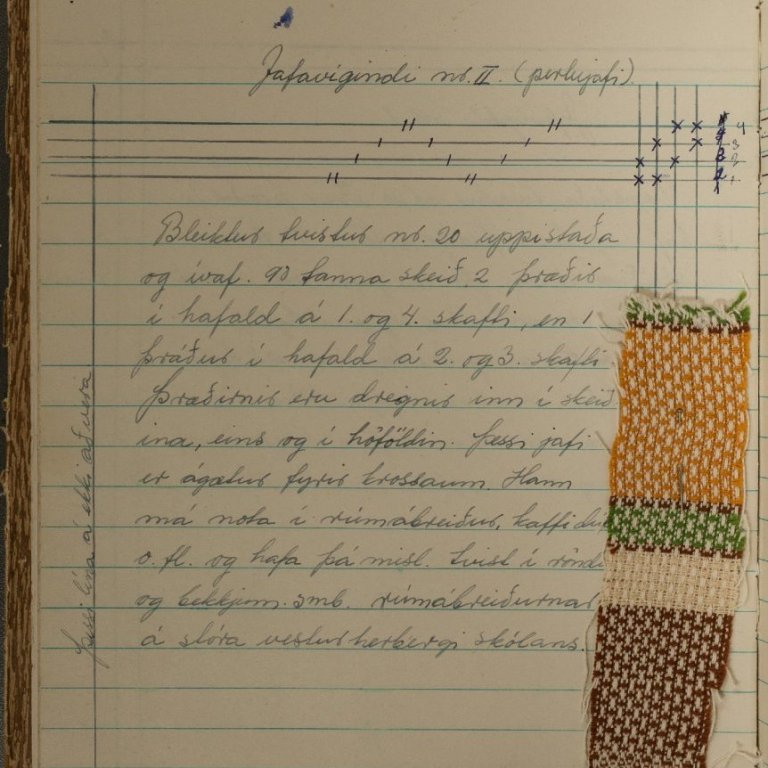 Jafavígindi nr. II. (perlujafi).
4
3
2
1
Bleiktur tvistur nr. 20 uppistaða
og ívaf. 90 tanna skeið. 2 þræðir
í hafald á 1. og 4. skafti, en 1
þráður í hafald á 2. og 3. skafti
Þræðirnir eru dregnir inn í skeið
ina, eins og í höföldin. Þessi jafi
er ágætur fyrir krossaum. Hann
má nota í rúmábreiður, kaffidú
o. fl. og hafa þá misl. tvist í rönd
og bekkjom. smb. rúmábreiðurnar
á stóra vesturherbergi skólans.
Þessi lína á ekki að vera